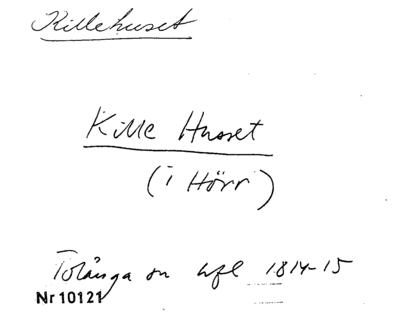 Killehuset
Kille Huset
(i Hörr)
Tolånga sn hfl 1814-15
Nr 10121